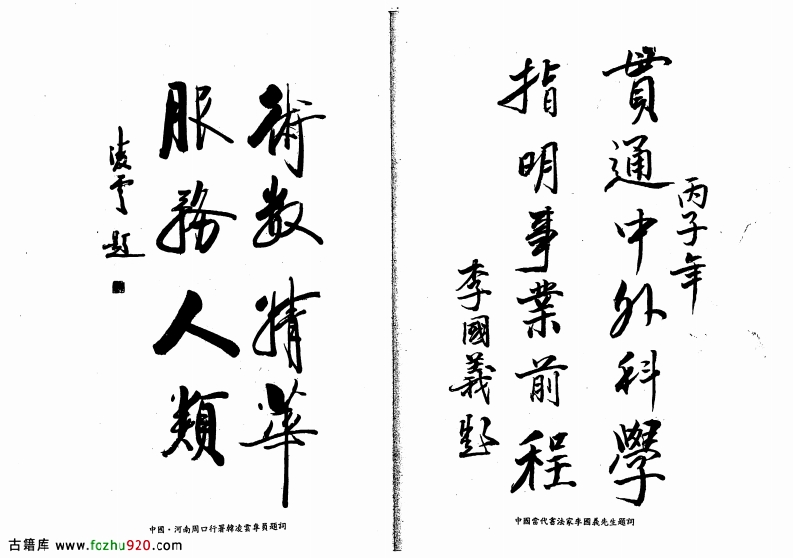 丙子年
貫通中外科學
指明事業前程
李國義題
中國當代書法家李國義先生題詞
術数精華
服務人類
凌雲題
中國·河南周口行署韓凌雲專員題詞
古籍库 www.fozhu920.com